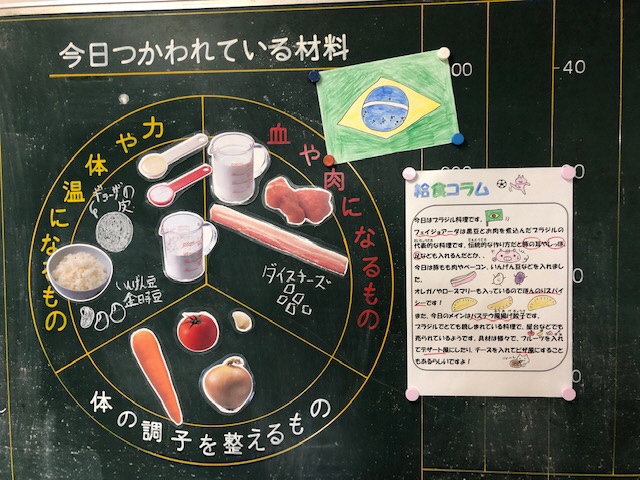 今日つかわれている材料
力や体や温になるもの
血や肉になるもの
体の調子を整えるもの
ギョーザの皮
いんげん豆
金時豆
ダイスチーズ
00
-40
給食コラム
今日はブラジル料理です。
フェイジョアーダは黒豆とお肉を煮込んだブラジルの
代表的な料理です。伝統的な作り方だと豚の耳やしっぽ、
足なども入れるんだとか、
今日は豚もも肉やベーコン、いんげん豆などを入れまし
た。
オレガノやローズマリーも入っているのでほんのりスパイ
シーです！
また、今日のメインはパステウ風揚げ餃子です。
ブラジルでとても親しまれている料理で、屋台などでも
売られているようです。具材は様々で、フルーツを入れ
てデザート風にしたり、チーズを入れてピザ風にすること
もあるらしいですよ！